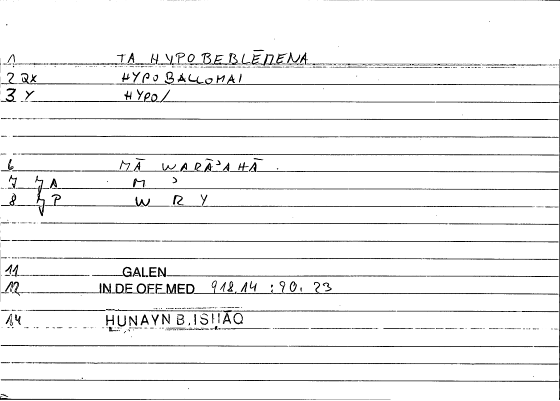 1 TA HYPOBEBLĒMENA
2 QX HYPOBALLOMAI
3 Y HYPO/
6 MĀ WARĀʾAHĀ
7 A M ʾ
8 P W R Y
11 GALEN
12 IN DE OFF.MED 918,14 : 90, 23
14 HUNAYN B.ISḤĀQ